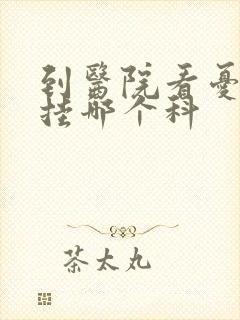 到醫院看憂
挂哪个科
茶太丸